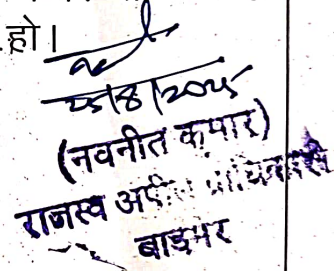 हो।
25/8/2025
(नवनीत कुमार)
राजस्व अपील प्राधिकारी
बाड़मेर